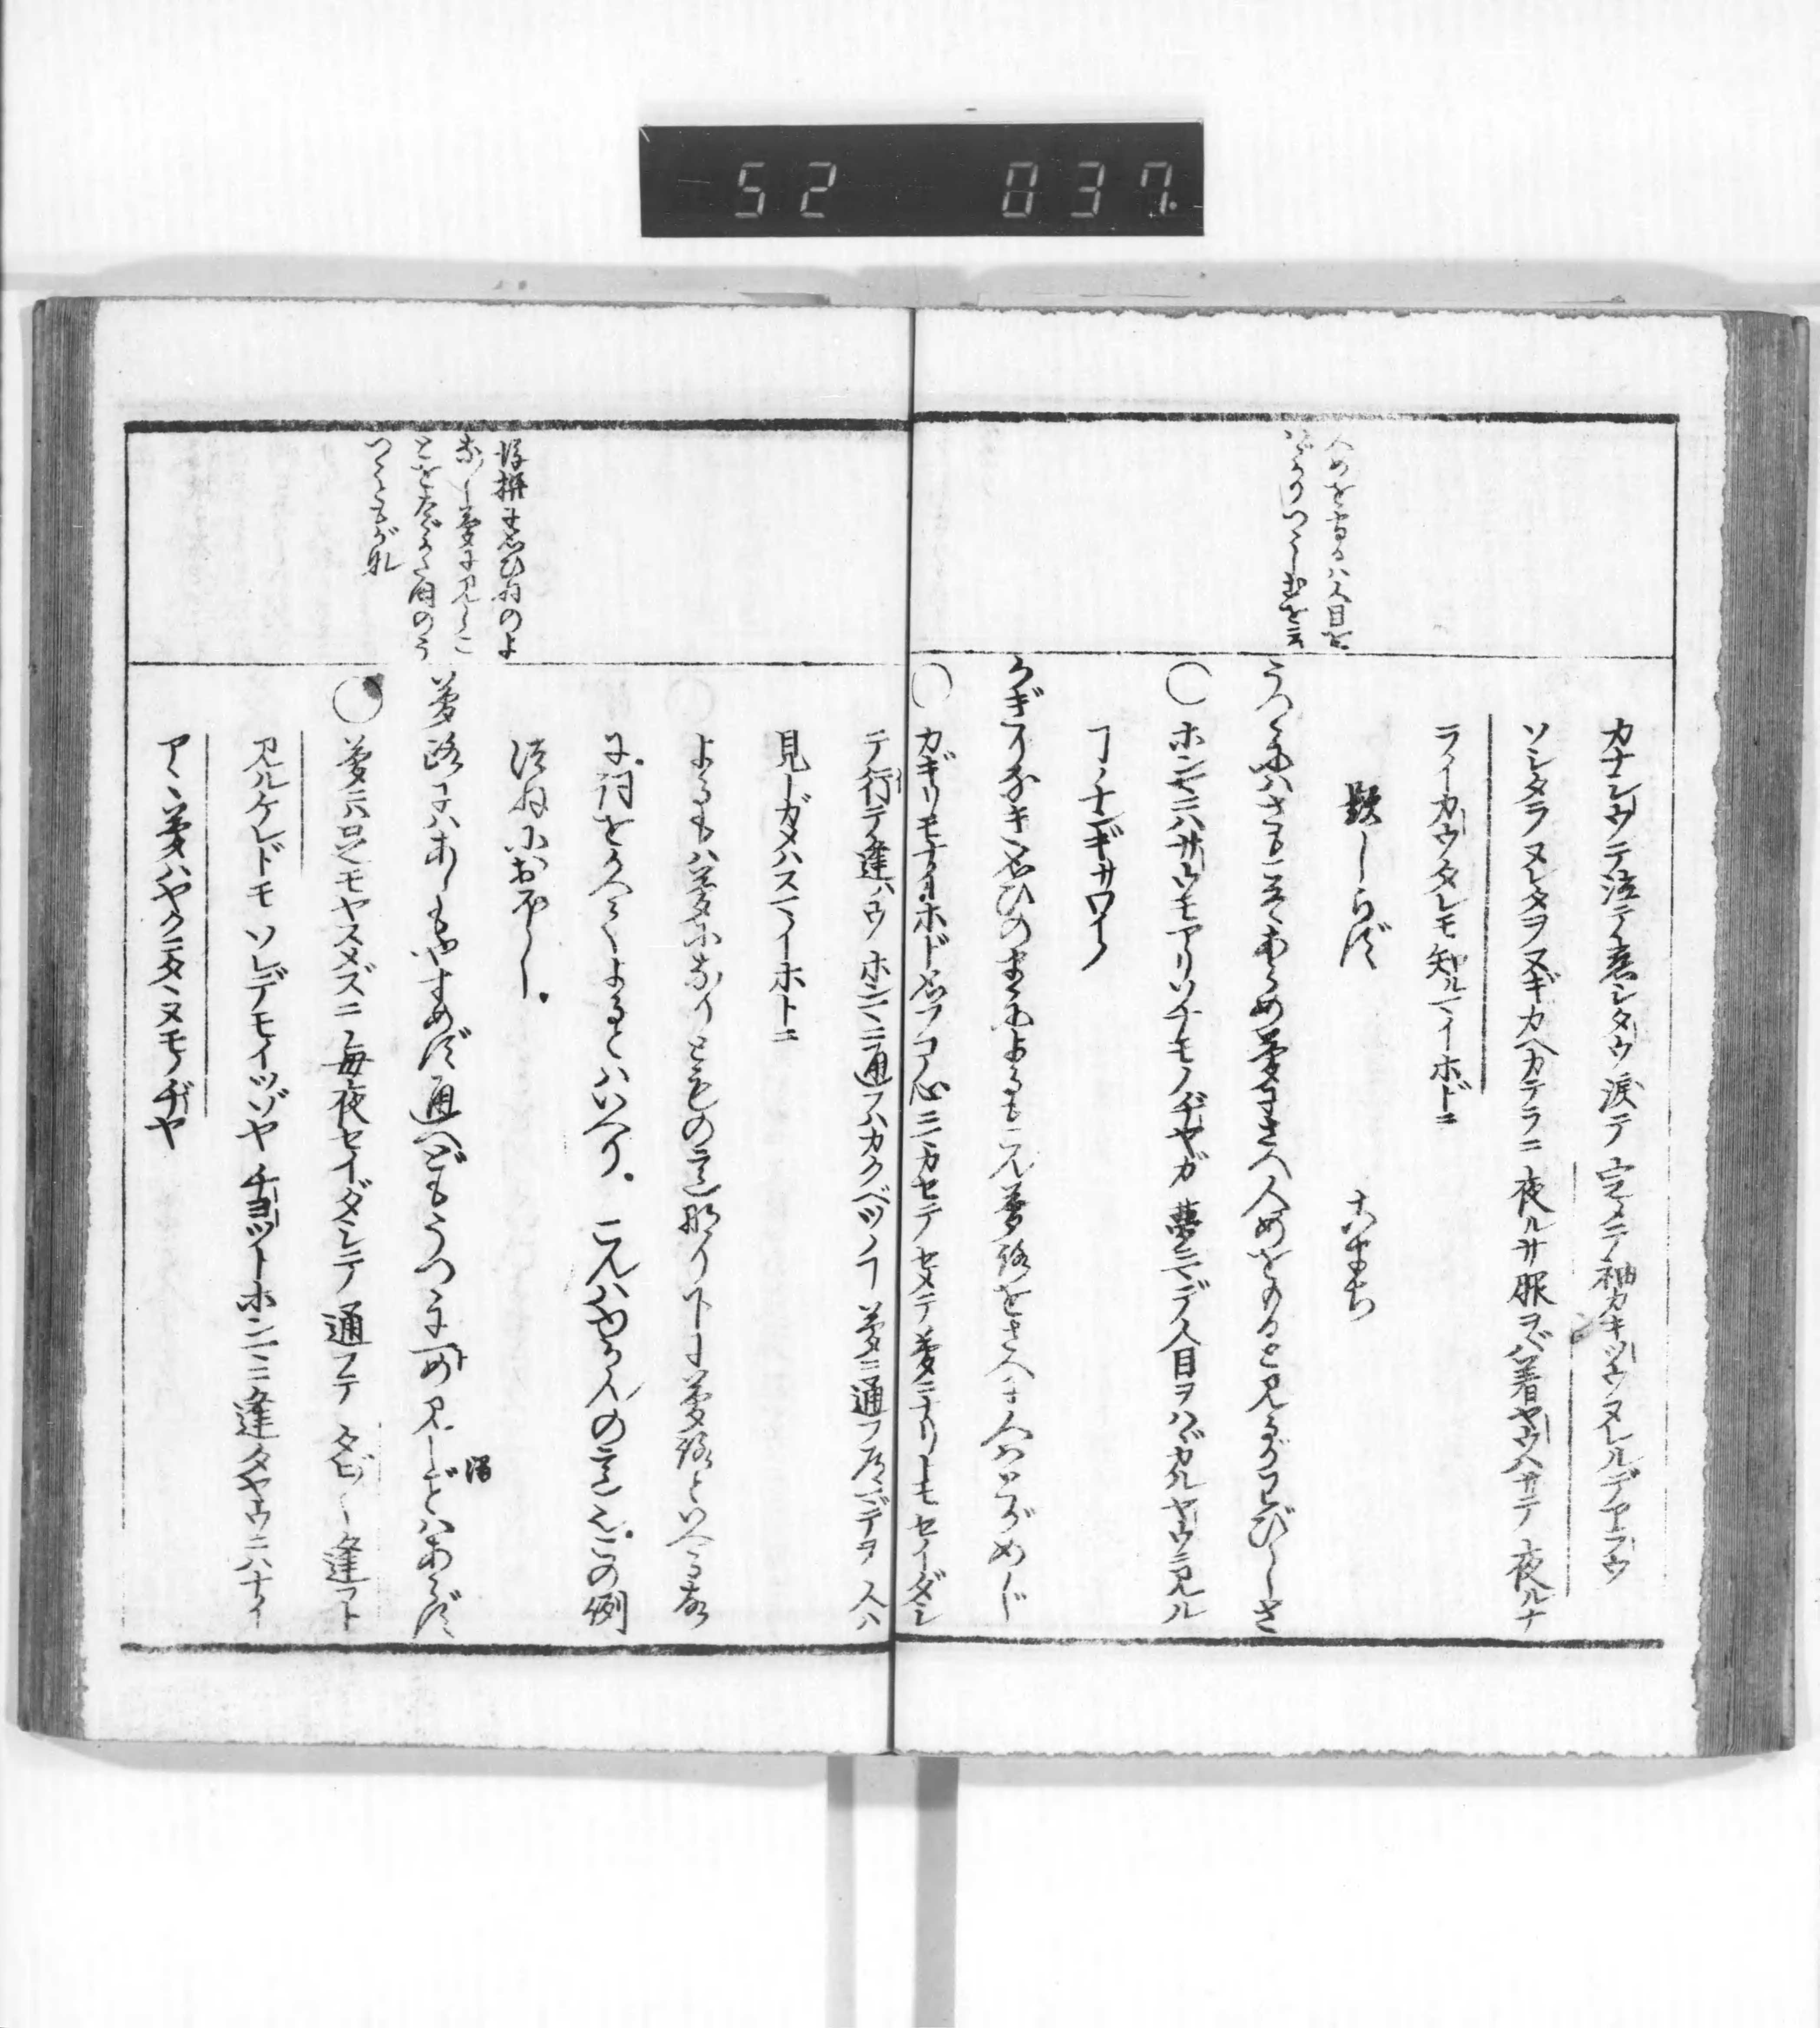 52 037.
人めをもるハ人目を
はゞかりつゝしむを云
カナシウテ泣テ恋シタウ涙デ定メテ袖ガキツウヌレルデアラウ
ソシタラヌレタヲヌギカヘカテラニ夜ルサ服ヲバ着ヤウハサテ夜ルナ
ライカウタレモ知ルマイホドニ
題しらず こまち
うつゝにハさもこそあらめ夢にさへ人めをもると見るがわびしさ
○ホンマニハサウモアリソナモノヂヤガ夢ニマデ人目ヲハヾカルヤウニ見ル
ハナンギサウナ
かぎりなき思ひのまゝによるもこん夢路をさへに人ハとがめじ
○カギリモナイホド思フコノ心ニマカセテセメテ夢ニナリトモセイダシ
テ行テ逢ハウホンマニ通フハカクベツノヿ夢ニ通フ道マデヲ人ハ
見トガメハスマイホトニ
よるもハ夢になりともの意也下に夢路といへる故
に詞をかへてよるとハいへり。こんハゆかんの意也。この例
つねにおほし。
後撰に思ひねのよ
なよな夢に見るこ
とをたゞかた時のう
つゝともがな
夢路にハあしもやすめず通へどもうつゝに一め見しごとハあらず
○夢ニハ足モヤスメズニ毎夜セイダシテ通フテタビタビ逢フト
見ルケレドモソレデモイツゾヤチヨツトホンマニ逢タヤウニハナイ
アヽ夢ハヤクニタヽヌモノヂヤ